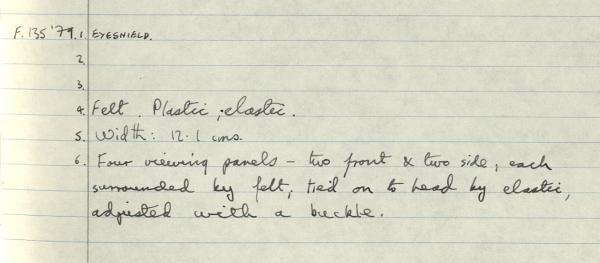 F.135'79.1. EYESHIELD.
2.
3.
4. Felt. Plastic; elastic.
5. Width: 12.1 cms.
6. Four viewing panels – two front & two side, each
surrounded by felt; tied on to head by elastic,
adjusted with a buckle.